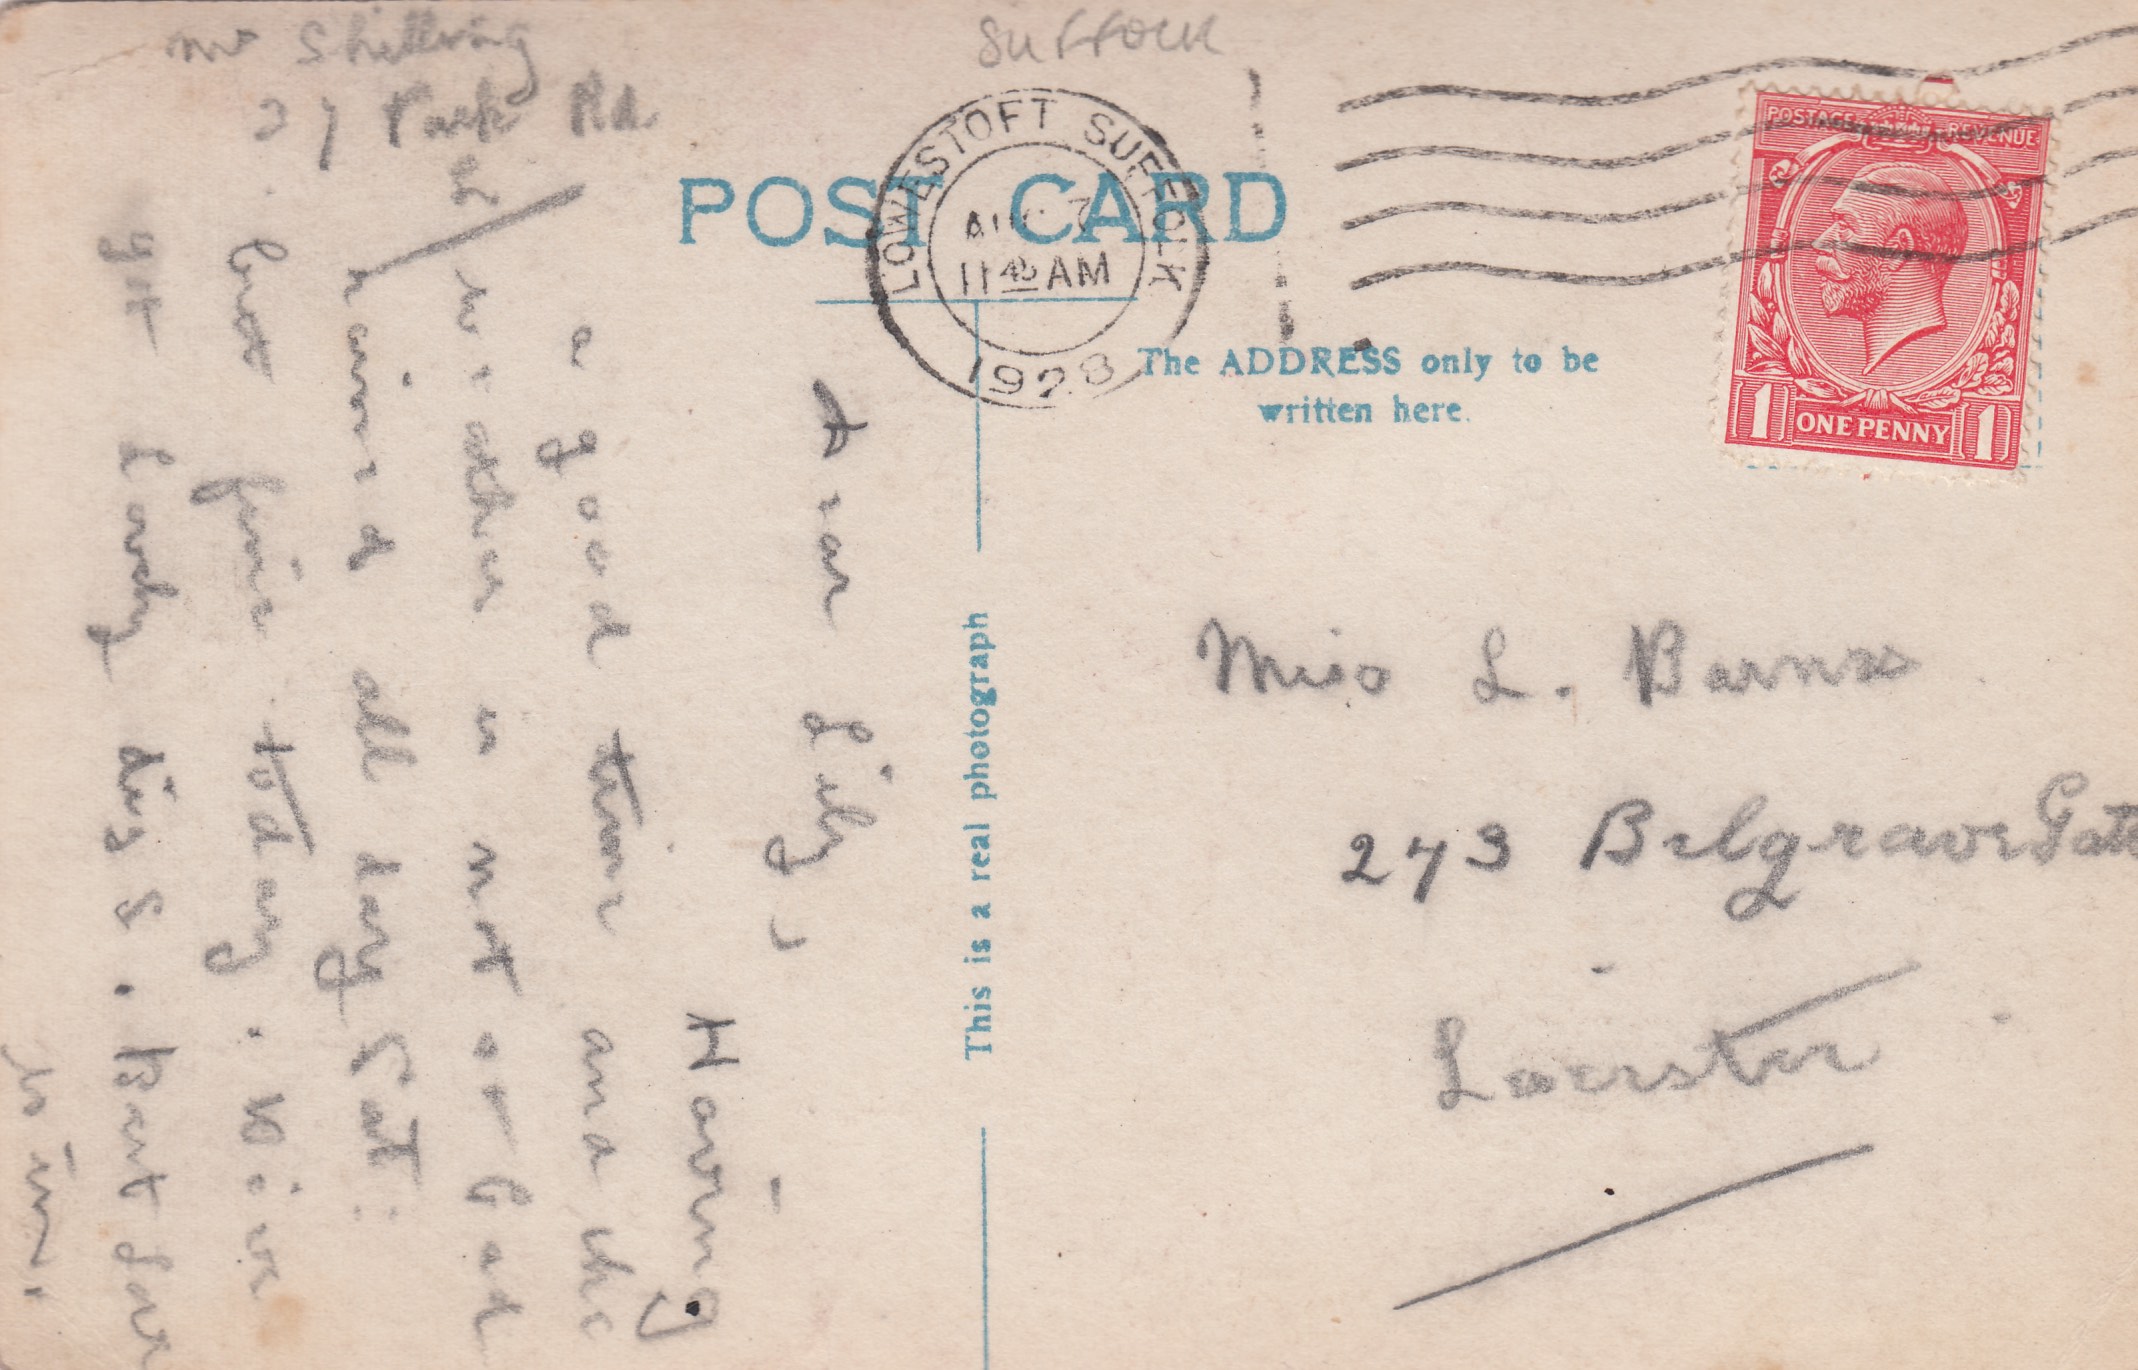 Mr Shilling
27 Park Rd.
Suffolk
LOWESTOFT SUFFOLK
AUG 7
11 45 AM
1928
POSTAGE REVENUE
1 ONE PENNY 1
POST CARD
The ADDRESS only to be
written here.
This is a real photograph
Dear Lily,
Having
a good time and the
weather is not so bad
rained all day Sat:
but fine today. Have
got Lovely digs. Best Love
Miss L. Barnes
273 Belgrave Gate
Leicester